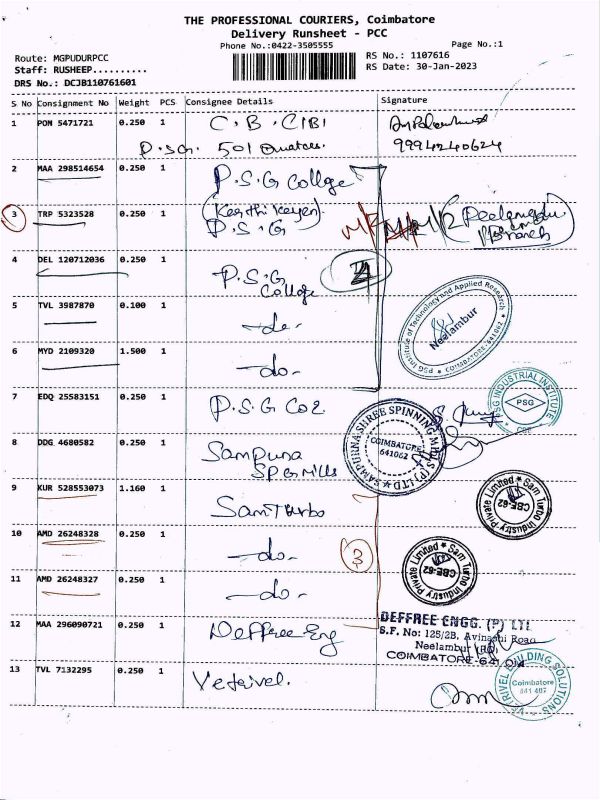 THE PROFESSIONAL COURIERS, Coimbatore
Delivery Runsheet - PCC
Phone No.:0422-3505555
Page No.:1
Route: MGPUDURPCC
RS No.: 1107616
Staff: RUSHEEP..........
RS Date: 30-Jan-2023
DRS No.: DCJB110761601
S No Consignment No Weight PCS Consignee Details Signature
1 PON 5471721 0.250 1 C. B. CIBI
P.SG. 501 9994240624
2 MAA 298514654 0.250 1 P.S.G College
3 TRP 5323528 0.250 1 (Karthikeyan) P.S.G
4 DEL 120712036 0.250 1 P.S.G College
PSG Institute of Technology and Applied Research
Neelambur
COIMBATORE-641062
5 TVL 3987870 0.100 1 -do-
6 MYD 2109320 1.500 1 -do-
7 EDQ 25583151 0.250 1 P.S.G
PSG INDUSTRIAL INSTITUTE
PSG
CBE
8 DDG 4680582 0.250 1 Sampurna SPG Mills
SAMPURNA SHREE SPINNING MILLS (P) LTD
COIMBATORE
641062
9 KUR 528553073 1.160 1 Sam Turbo
Sam Turbo Industry Private Limited
CBE-62
10 AMD 26248328 0.250 1 -do-
3
Sam Turbo Industry Private Limited
CBE-62
11 AMD 26248327 0.250 1 -do-
12 MAA 296090721 0.250 1 Deffree Eng
DEFFREE ENGG. (P) LTD
S.F. No: 125/2B, Avinashi Road
Neelambur (PO)
COIMBATORE-641
13 TVL 7132295 0.250 1 Vetrivel.
VETRIVEL BUILDING SOLUTIONS
Coimbatore
641 407